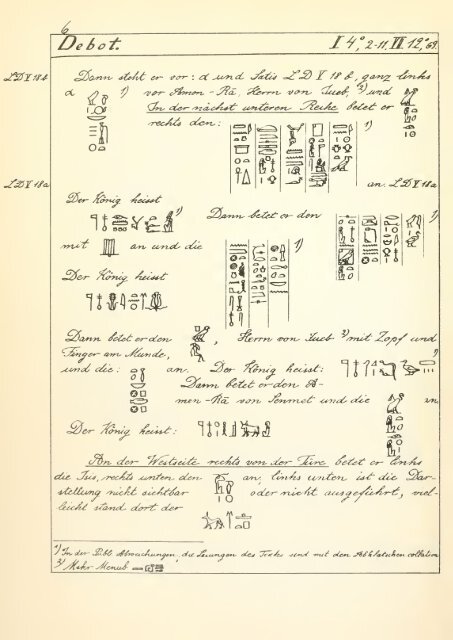 6
Debot. I 4°, 2-11, VI 12°, 69.
LD V 18b Dann steht er vor: α und Satis LD V 18 b, ganz links
α 1) vor Amon-Râ, Herrn von 2) und
In der nächst unteren Reihe betet er
rechts den: 1)
an. LD V 18a
LD V 18a
Der König heisst
1) Dann betet er den 1)
mit an und die 1)
Der König heisst
Dann betet er den , Herrn von 2) mit Zopf und
Finger am Munde,
und die: an. Der König heisst: 1)
Dann betet er den A-
men-Râ von Senmet und die an
Der König heisst:
An der Westseite rechts von der Türe betet er links
die Isis, rechts unten den an, links unten ist die Dar-
stellung nicht sichtbar oder nicht ausgeführt, viel-
leicht stand dort der
1) In der Publ. Abweichungen, die Lesungen des Textes sind mit den Abklatschen